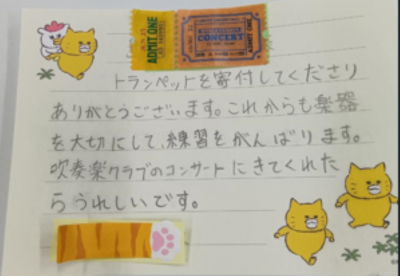 ADMIT ONE
CONCERT
トランペットを寄付してくださり
ありがとうございます。これからも楽器
を大切にして、練習をがんばります。
吹奏楽クラブのコンサートにきてくれた
らうれしいです。